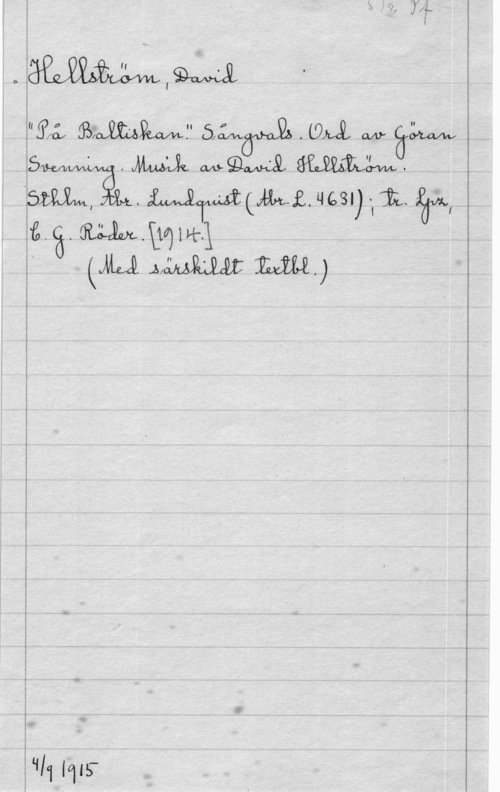 Hellström, David
"På Baltiskan." Sångvals. Ord av Göran
Svenning. Musik av David Hellström.
Sthlm, Abr. Lundquist (Abr. L. 4631); tr. Lpz,
C. G. Röder. [1914.]
(Med särskildt textbl.)
4/9 1915